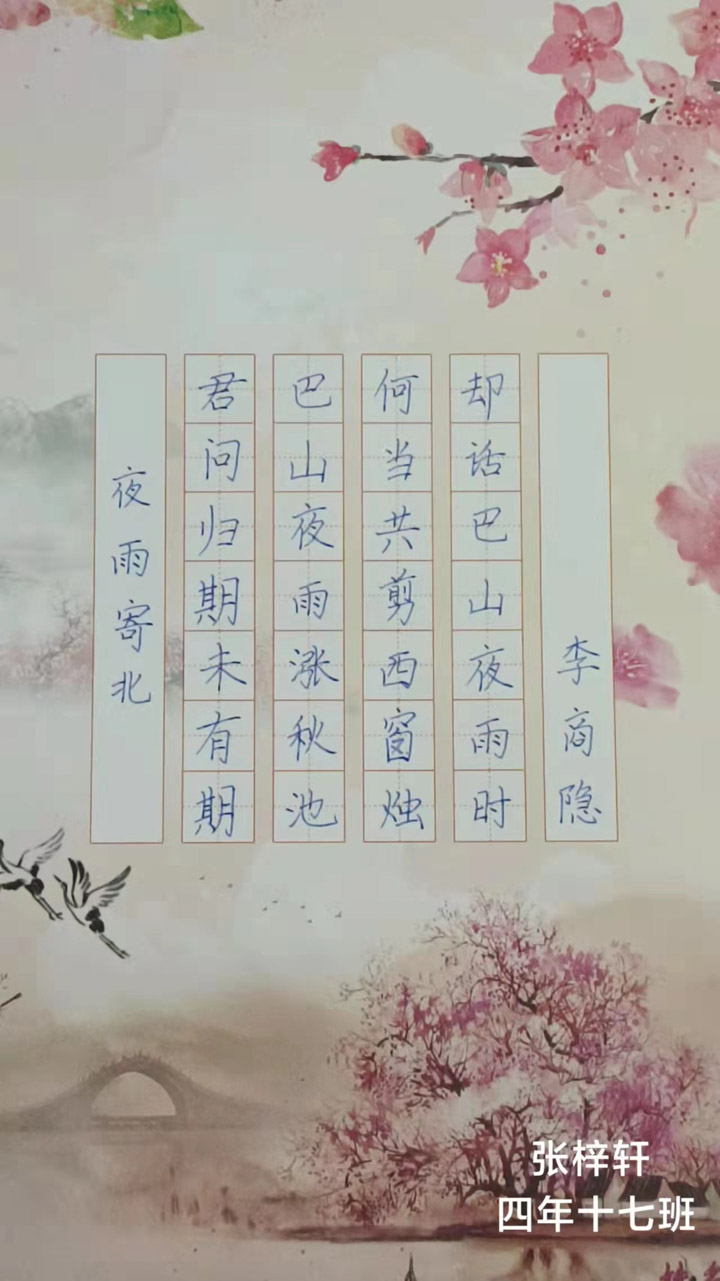 夜雨寄北
君问归期未有期
巴山夜雨涨秋池
何当共剪西窗烛
却话巴山夜雨时
李商隐
张梓轩
四年十七班